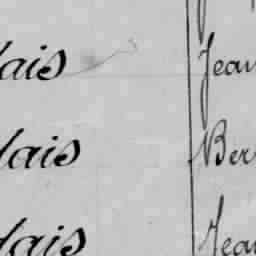 lais Jean
lais Ber
lais Jean